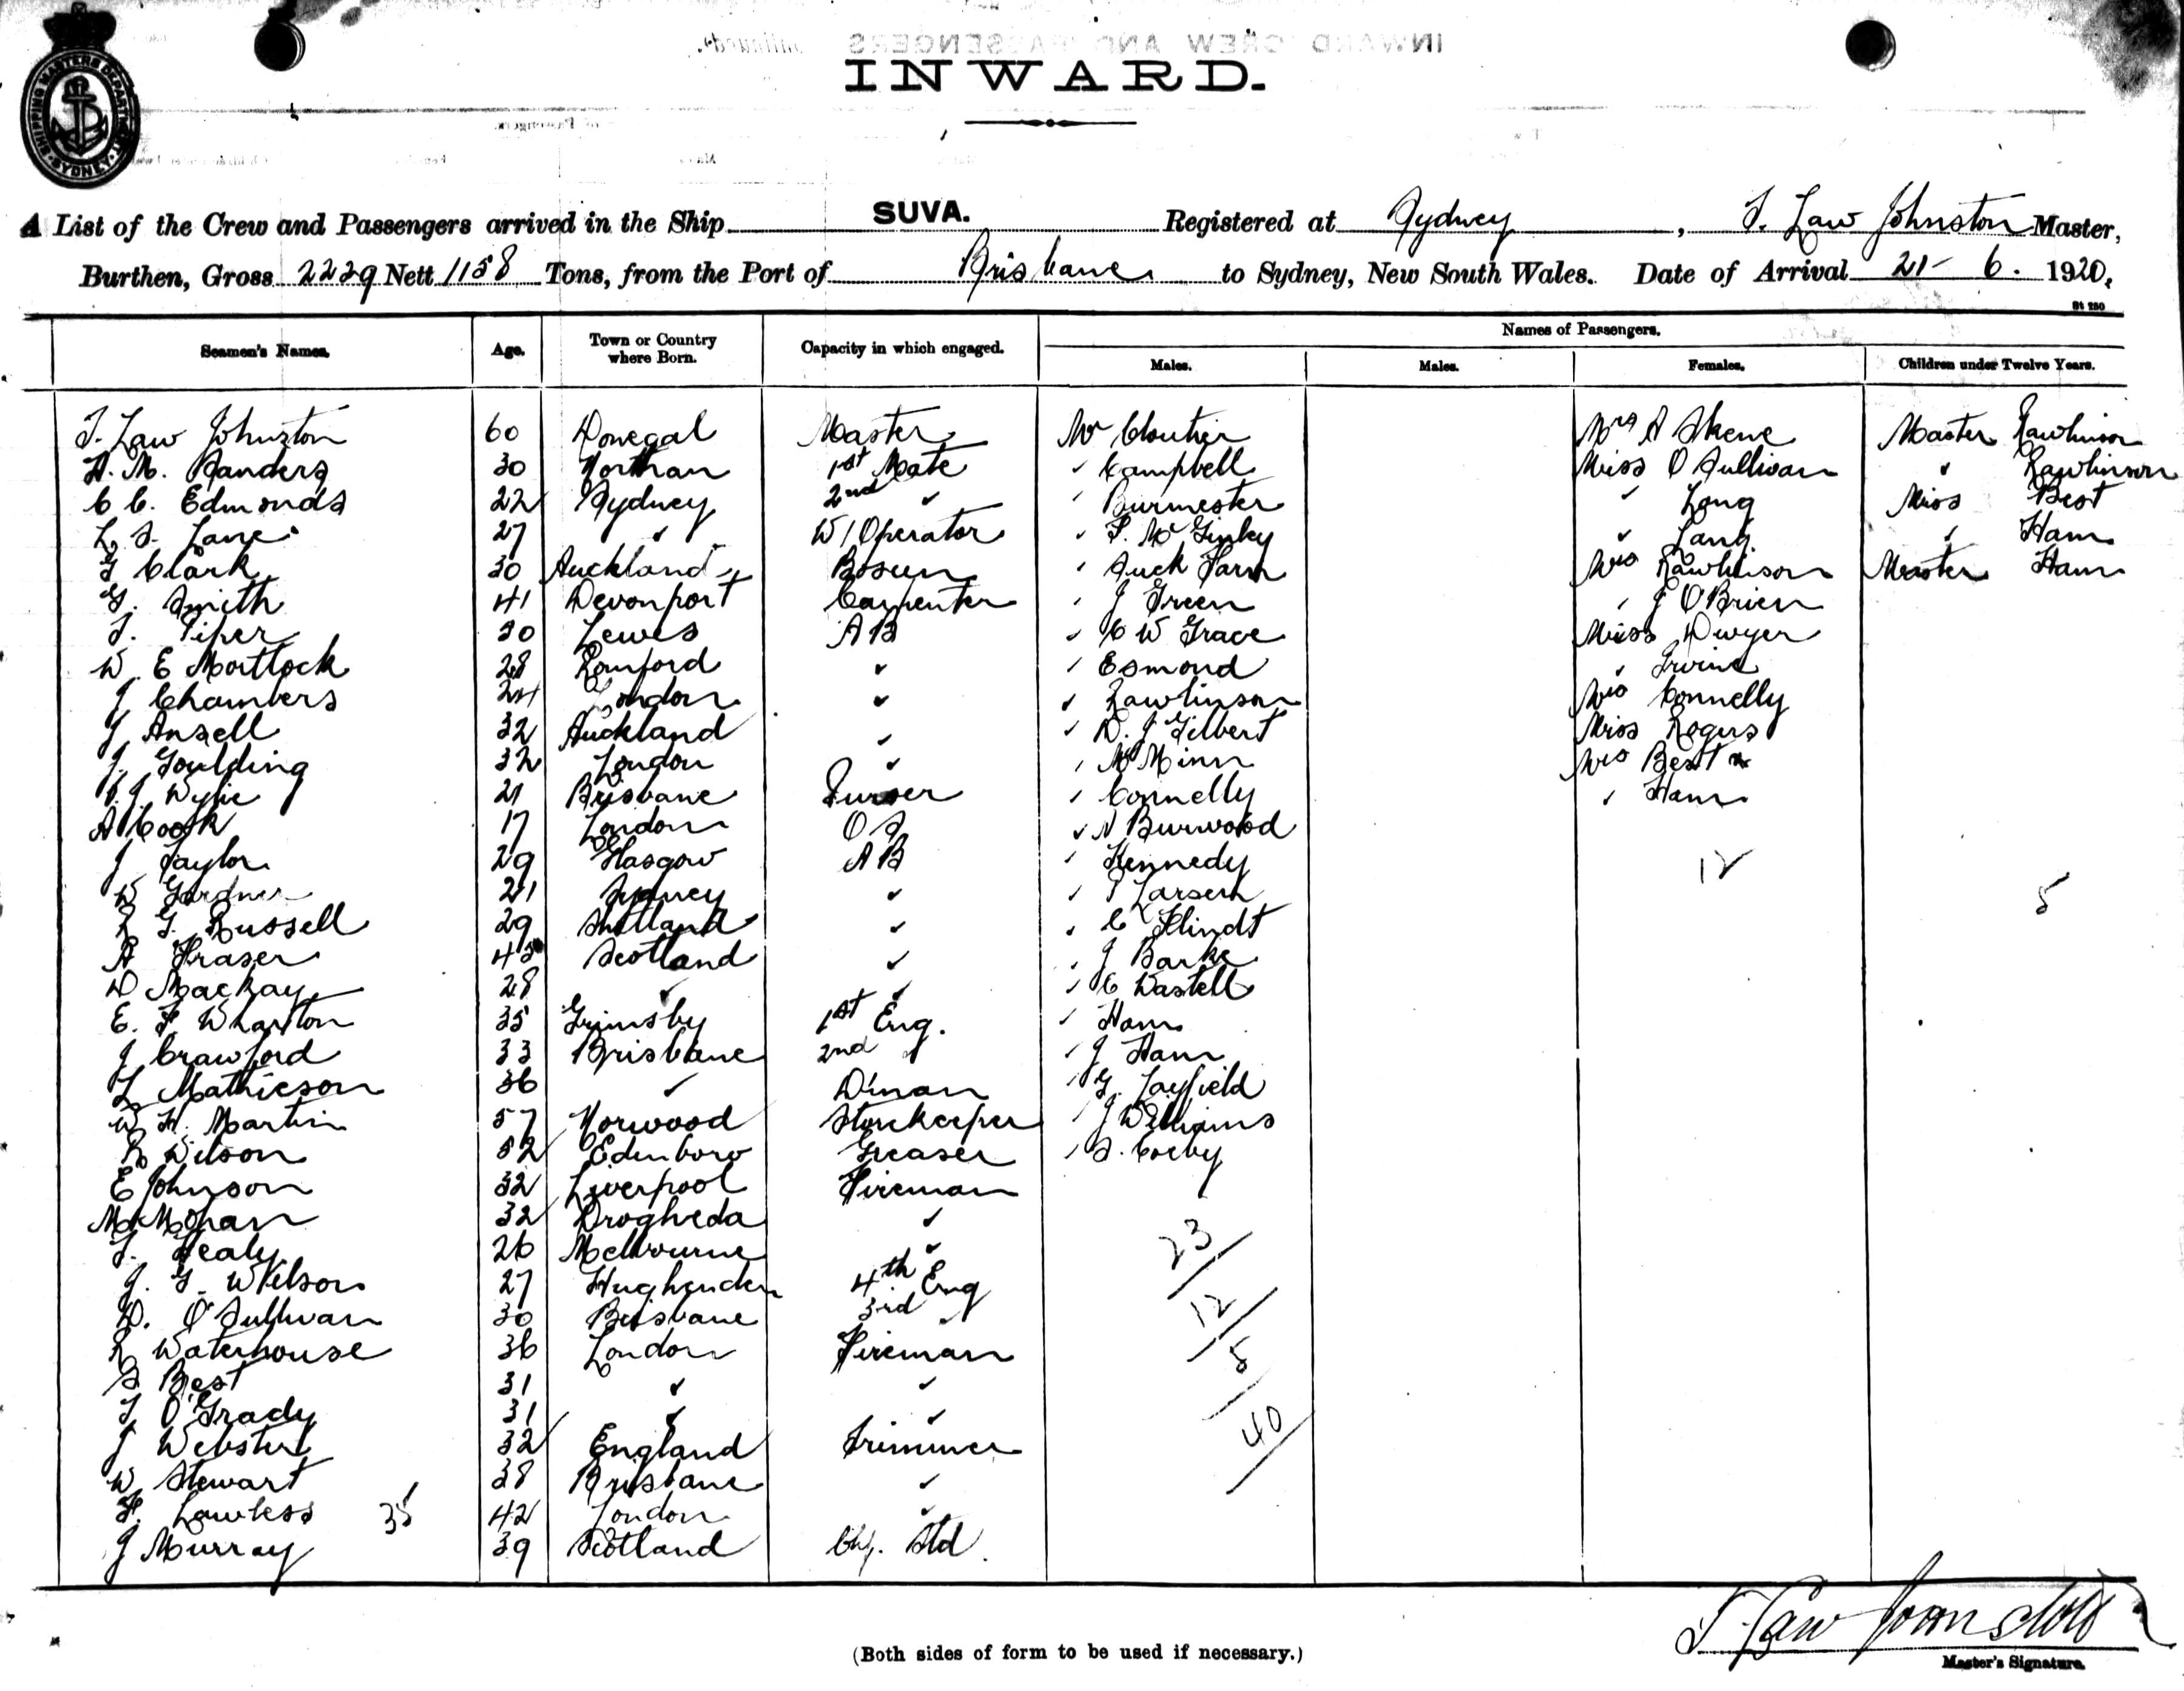 SHIPPING MASTERS DEPARTMENT SYDNEY
INWARD CREW AND PASSENGERS
INWARD.
A List of the Crew and Passengers arrived in the Ship SUVA. Registered at Sydney, T. Law Johnston Master,
Burthen, Gross 2229 Nett 1158 Tons, from the Port of Brisbane to Sydney, New South Wales. Date of Arrival 21-6. 1920.
St 280
Seamen's Names. Age. Town or Country where Born. Capacity in which engaged. Names of Passengers.
Males. Males. Females. Children under Twelve Years.
T. Law Johnston 60 Donegal Master Mr Cloutier Mrs A Skene Master Rawlinson
H. M. Sanders 30 Northan 1st Mate " Campbell Miss O Sullivan " Rawlinson
C C. Edmonds 22 Sydney 2nd " " Burmester " Long Miss Best
L. S. Lane 27 " W/Operator " " Lang " Ham
G Clark 30 Auckland Bosun " Auck Farm Mrs Rawlinson Master Ham
G. Smith 41 Devonport Carpenter " J Green " J O'Brien
T. Piper 30 Lewes AB " C W Grace Miss Dwyer
W. E Mortlock 28 Romford " " Esmond " Irvine
J Chambers 24 London " " Rawlinson Mrs Connelly
J Ansell 32 Auckland " " D. J Gilbert Miss Rogers
J. Goulding 32 London " " McMinn Mrs Best
Wylie 21 Brisbane Purser " Connelly " Ham
A Cook 17 London OS " N Burwood
J Taylor 29 Glasgow AB " Kennedy 12
W Gardner 21 Sydney " " P Larsen 5
R G. Russell 29 Shetland " " C Flindt
A Fraser 45 Scotland " " J Barke
D MacKay 28 " " " C Wastell
E. F. Wharton 35 Grimsby 1st Eng. " Ham
J Crawford 33 Brisbane 2nd " " J Ham
L Mathieson 36 " D'man " G. Layfield
W H. Martin 57 Norwood Storekeeper " J Williams
R Wilson 52 Edinboro Greaser " S. Corby
E Johnson 32 Liverpool Fireman
M Moran 32 Drogheda "
T. Healy 26 Melbourne " 23
J. G. Wilson 27 Hughenden 4th Eng
D. O'Sullivan 30 Brisbane 3rd " 12
R Waterhouse 36 London Fireman 5
S Best 31 " "
T O'Grady 31 " " 40
J Webster 32 England Trimmer
W Stewart 38 Brisbane "
F. Lawless 35 42 London "
J Murray 39 Scotland Chf. Std.
T. Law Johnston
(Both sides of form to be used if necessary.)
Master's Signature.